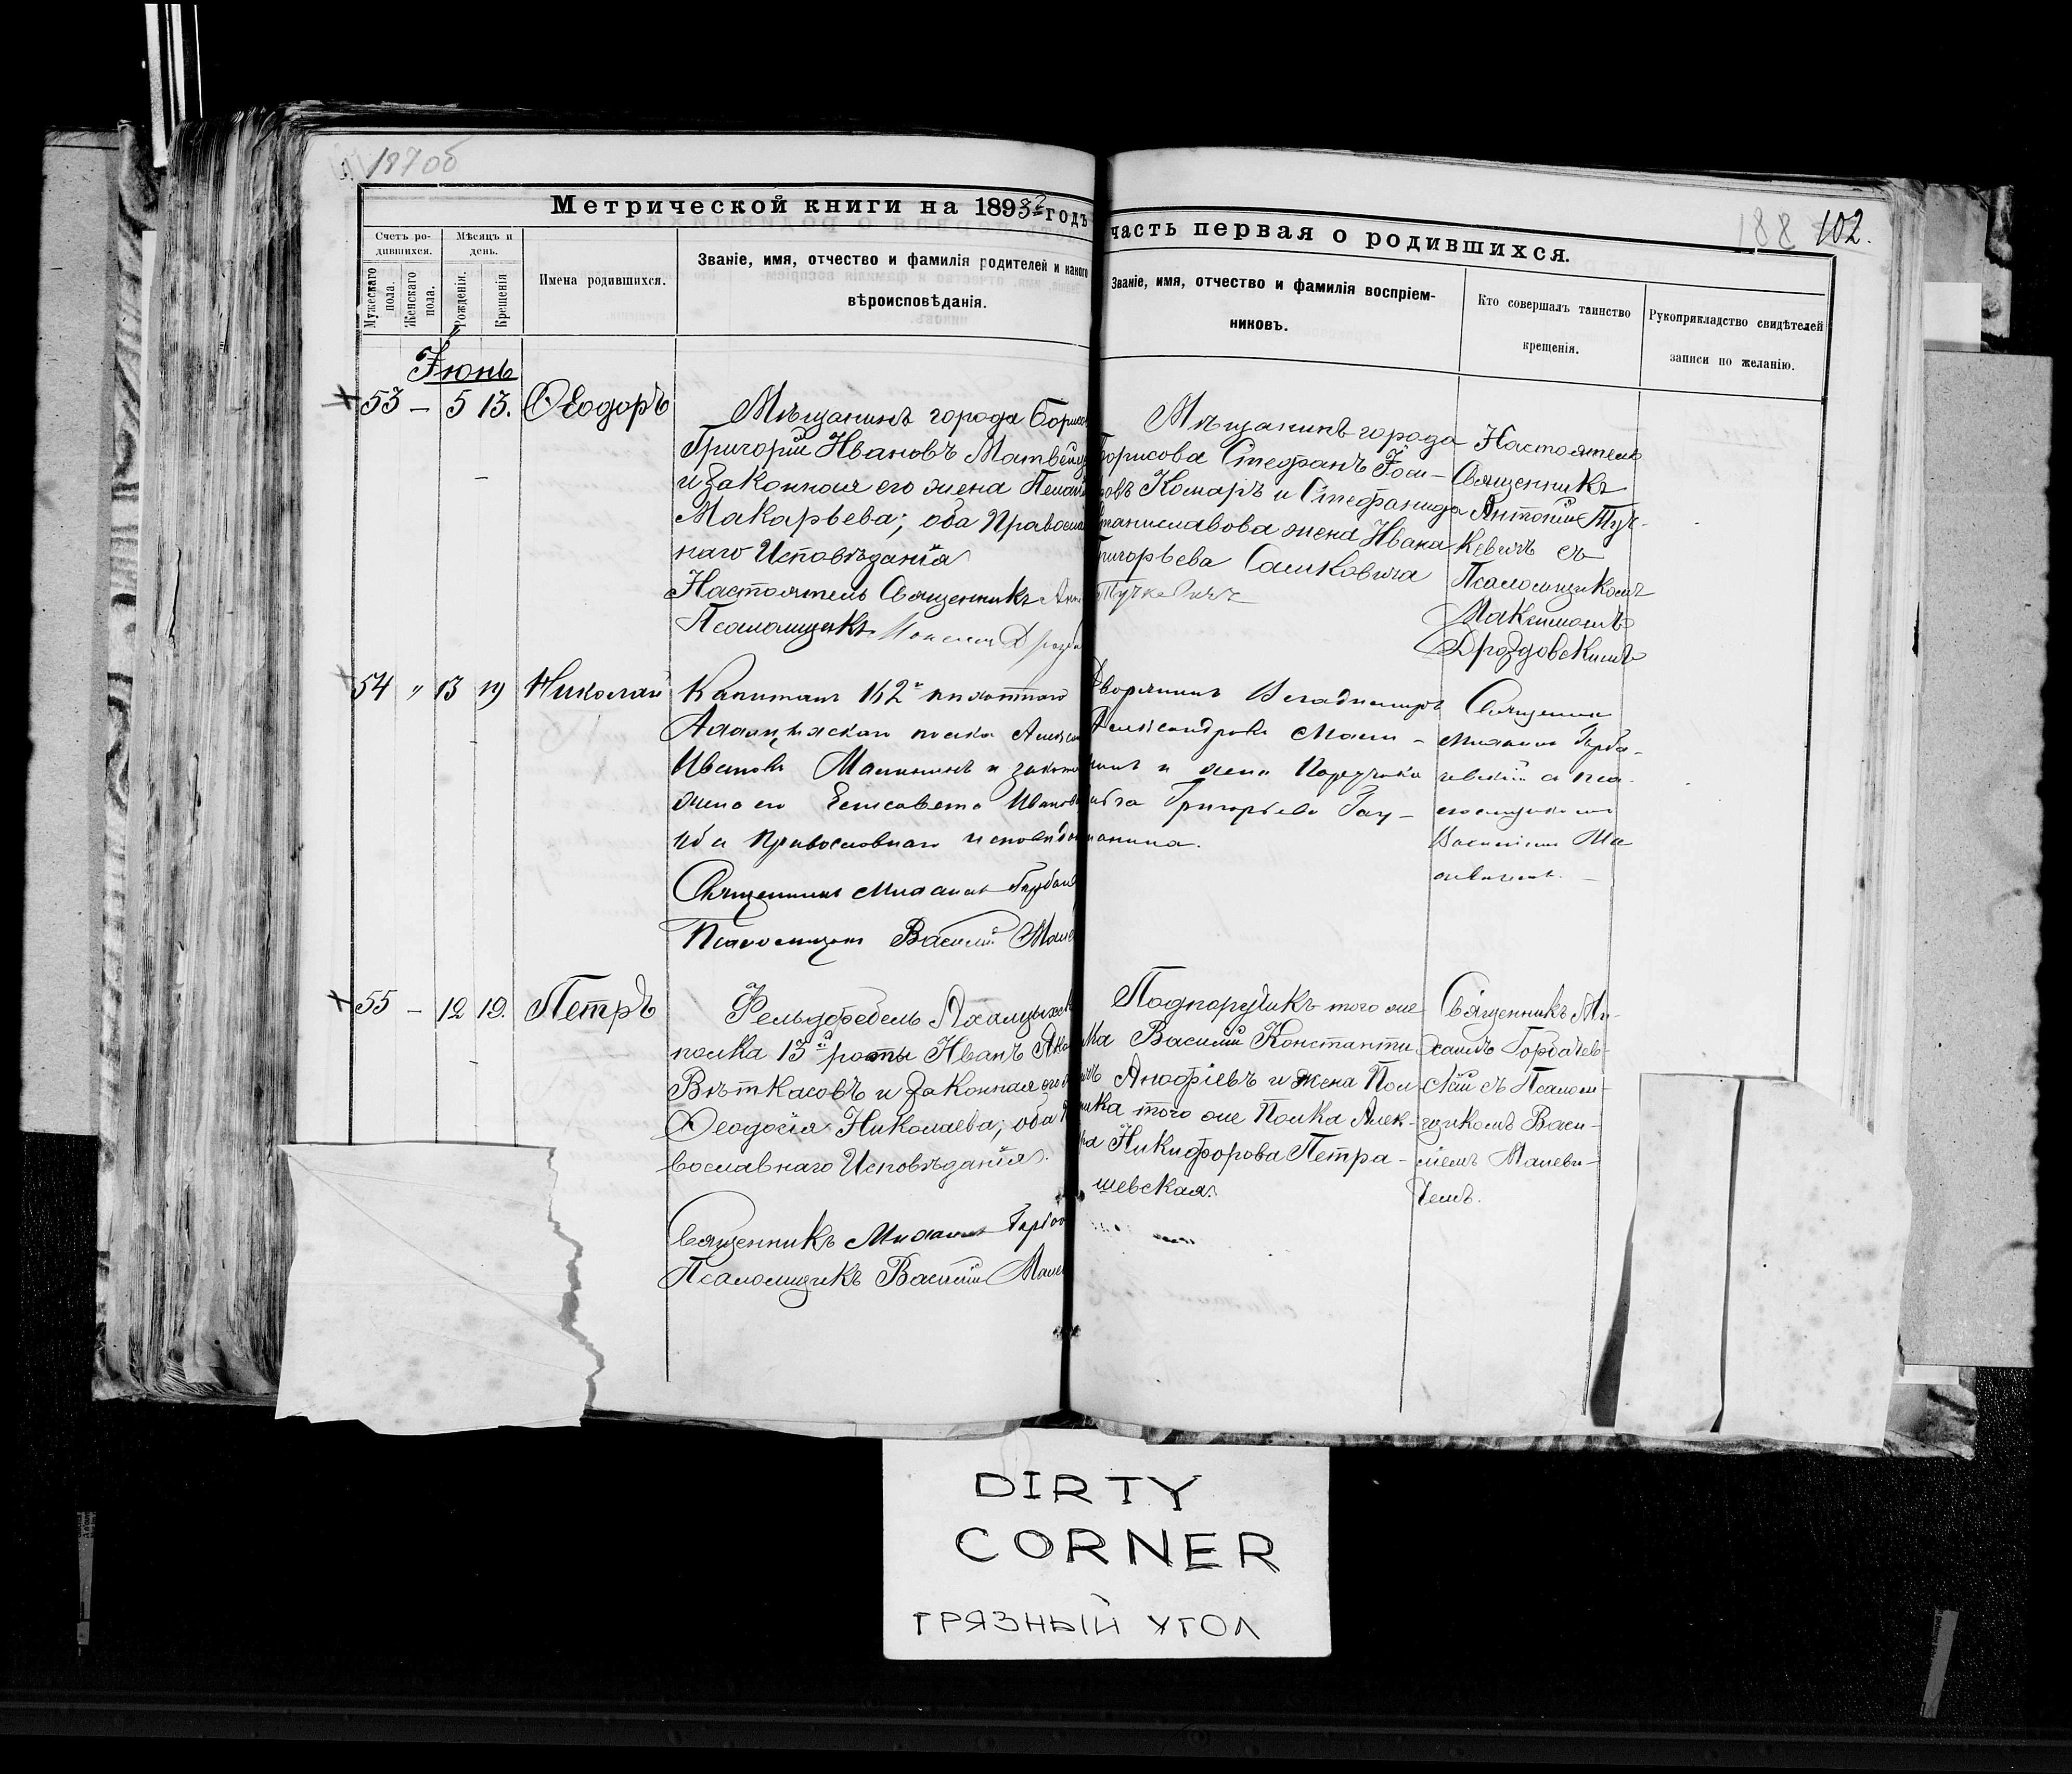 187 об
188
102.
Метрической книги на 1893 годъ
часть первая о родившихся.
Счетъ ро-
дившихся.
Мужескаго
пола.
Женскаго
пола.
Мѣсяцъ и
день.
Рожденія.
Крещенія
Имена родившихся.
Званіе, имя, отчество и фамилія родителей и какого
вѣроисповѣданія.
Званіе, имя, отчество и фамилія воспріем-
никовъ.
Кто совершалъ таинство
крещенія.
Рукоприкладство свидѣтелей
записи по желанію.
Іюнь
53 – 5 13. Ѳеодоръ
Мѣщанинъ города
Григорій Ивановъ
и законная его жена
Макарьева; оба
наго Исповѣданія
Настоятель Священникъ
Псаломщикъ
Мѣщанинъ города
Борисова Стефанъ Іоси-
Комаръ и Стефанида
Станиславова жена Ивана
Григорьева
Тучкевичъ
Настоятель
Священникъ
Антоній Туч-
кевичъ съ
Псаломщикомъ
Максимомъ
Дроздовскимъ
54 " 13 19 Николай
Капитанъ 162 пѣхотнаго
Ахалцыхскаго полка
Ивановъ
жена его Елисавета
оба Православнаго
Священникъ Михаилъ
Псаломщикъ Василій
Дворянинъ Владиміръ
Александровъ
и жена Поручика
Григорьева Гау-
Священник
Михаилъ Горба-
чевскій с пса-
ломщикомъ
Василіем Ма
левичем. –
55 – 12 19. Петръ
Фельдфебель
полка 13й роты Иванъ
Вѣткасовъ и законная его
Ѳеодосія Николаева; оба
вославнаго Исповѣданія.
Священникъ Михаилъ
Псаломщикъ Василій
Подпоручикъ того же
Василій Константи-
и жена Пол-
того же Полка Алек-
Никифорова Петра-
шевская.
Священникъ Ми-
хаилъ Горбачев-
скій съ Псалом-
щикомъ Васи-
ліемъ Малеви-
чемъ.
DIRTY
CORNER
ГРЯЗНЫЙ УГОЛ